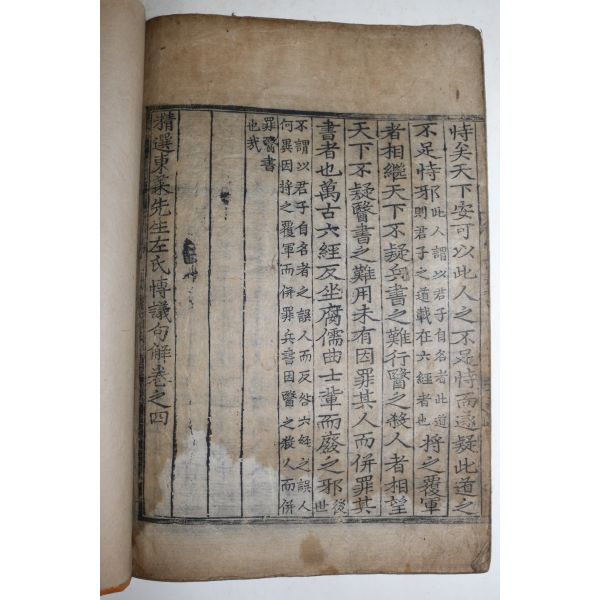 恃矣天下安可以此人之不足恃而遂疑此道之
不足恃邪此人謂以君子自名者此道則君子之道載在六經者也將之覆軍
者相繼天下不疑兵書之難行醫之殺人者相望
天下不疑醫書之難用未有因罪其人而併罪其
書者也萬古六經反坐腐儒曲士輩而廢之邪後世
不謂以君子自名者之誤人而反咎六經之誤人
何異因將之覆軍而併罪兵書因醫之殺人而併
罪醫書
也哉
精選東萊先生左氏博議句解卷之四